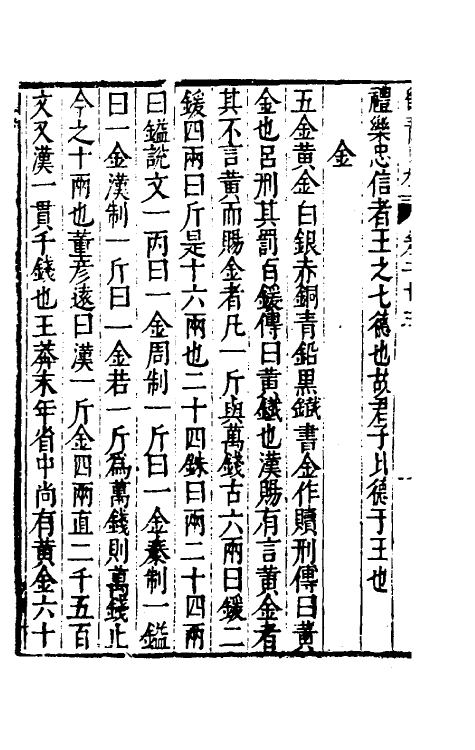 禮樂忠信者王之七德也故君子比德于王也
金
五金黃金白銀赤銅青鉛黑鐵書金作贖刑傳曰黃
金也呂刑其罰百鍰傳曰黃鐵也漢賜有言黃金者
其不言黃而賜金者凡一斤與萬錢古六兩曰鍰二
鍰四兩曰斤是十六兩也二十四銖曰兩二十四兩
曰鎰說文一丙曰一金周制一斤曰一金秦制一鎰
曰一金漢制一斤曰一金若一斤為萬錢則萬錢止
今之十兩也董彥遠曰漢一斤金四兩直二千五百
文又漢一貫千錢也王莽末年省中尚有黃金六十